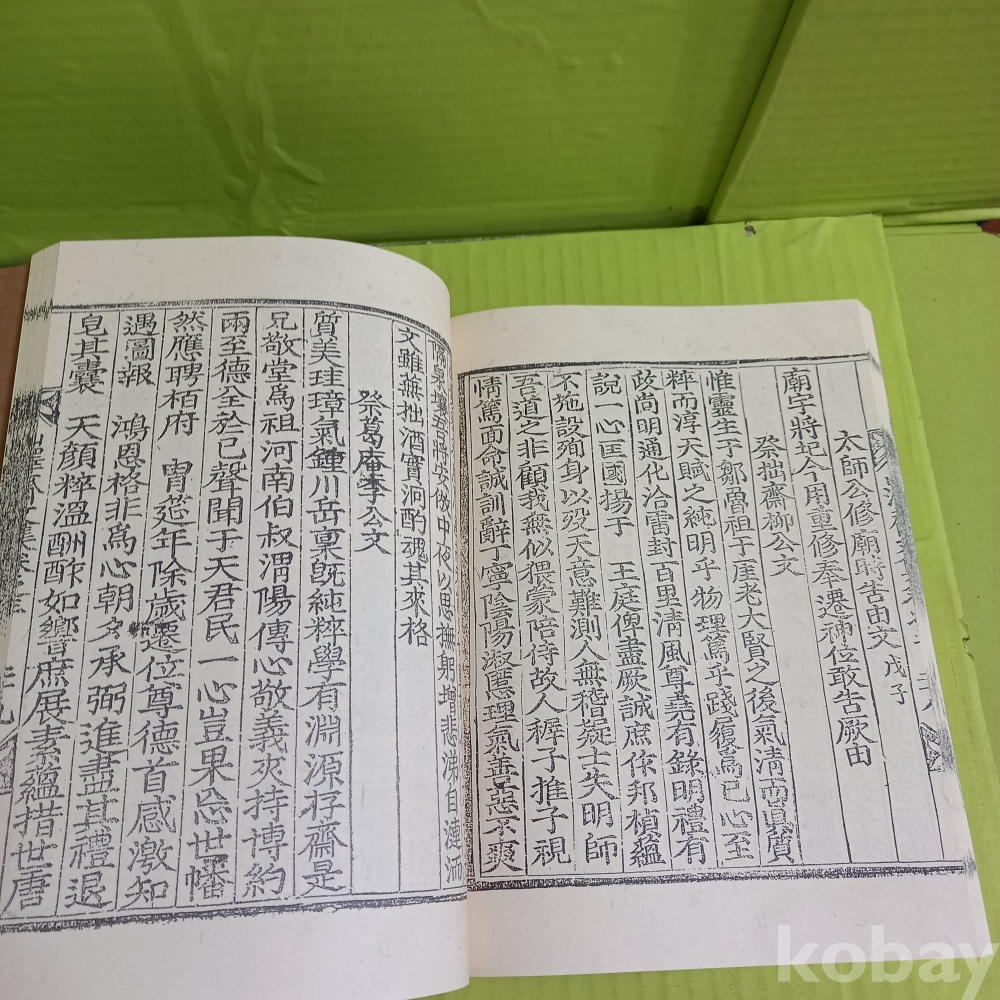 太師公修廟時告由文 戊子
廟宇將圮今用重修奉遷神位敢告厥由
祭拙齋柳公文
惟靈生于鄒魯祖于厓老大賢之後氣清而眞質
粹而淳天賦之純明乎物理篤乎踐履爲已心至
政尚明通化洽雷封百里清風尊堯有錄明禮有
說一心匡國揚于 王庭俾盡厥誠庶作邦楨蘊
不施設殉身以歿天意難測人無稽疑士失明師
吾道之非顧我無似猥蒙陪侍故人穉子推子視
情篤面命誠訓辭丁寧陰陽淑慝理氣善惡不爽
儒泉壤吾將安倣中夜以思撫躬增悲涕自漣洏
文雖無拙酒實泂酌魂其來格
祭葛庵李公文
質美珪璋氣鍾川岳稟旣純粹學有淵源存齋是
兄敬堂爲祖河南伯叔渭陽傳心敬義夾持博約
兩至德全於已聲聞于天君民一心豈果忘世幡
然應聘栢府 冑筵年除歲遷位尊德首感激知
遇圖報 鴻恩格非爲心朝夕承弼進盡其禮退
皂其囊 天顔粹溫酬酢如響庶展素蘊措世唐
kobay